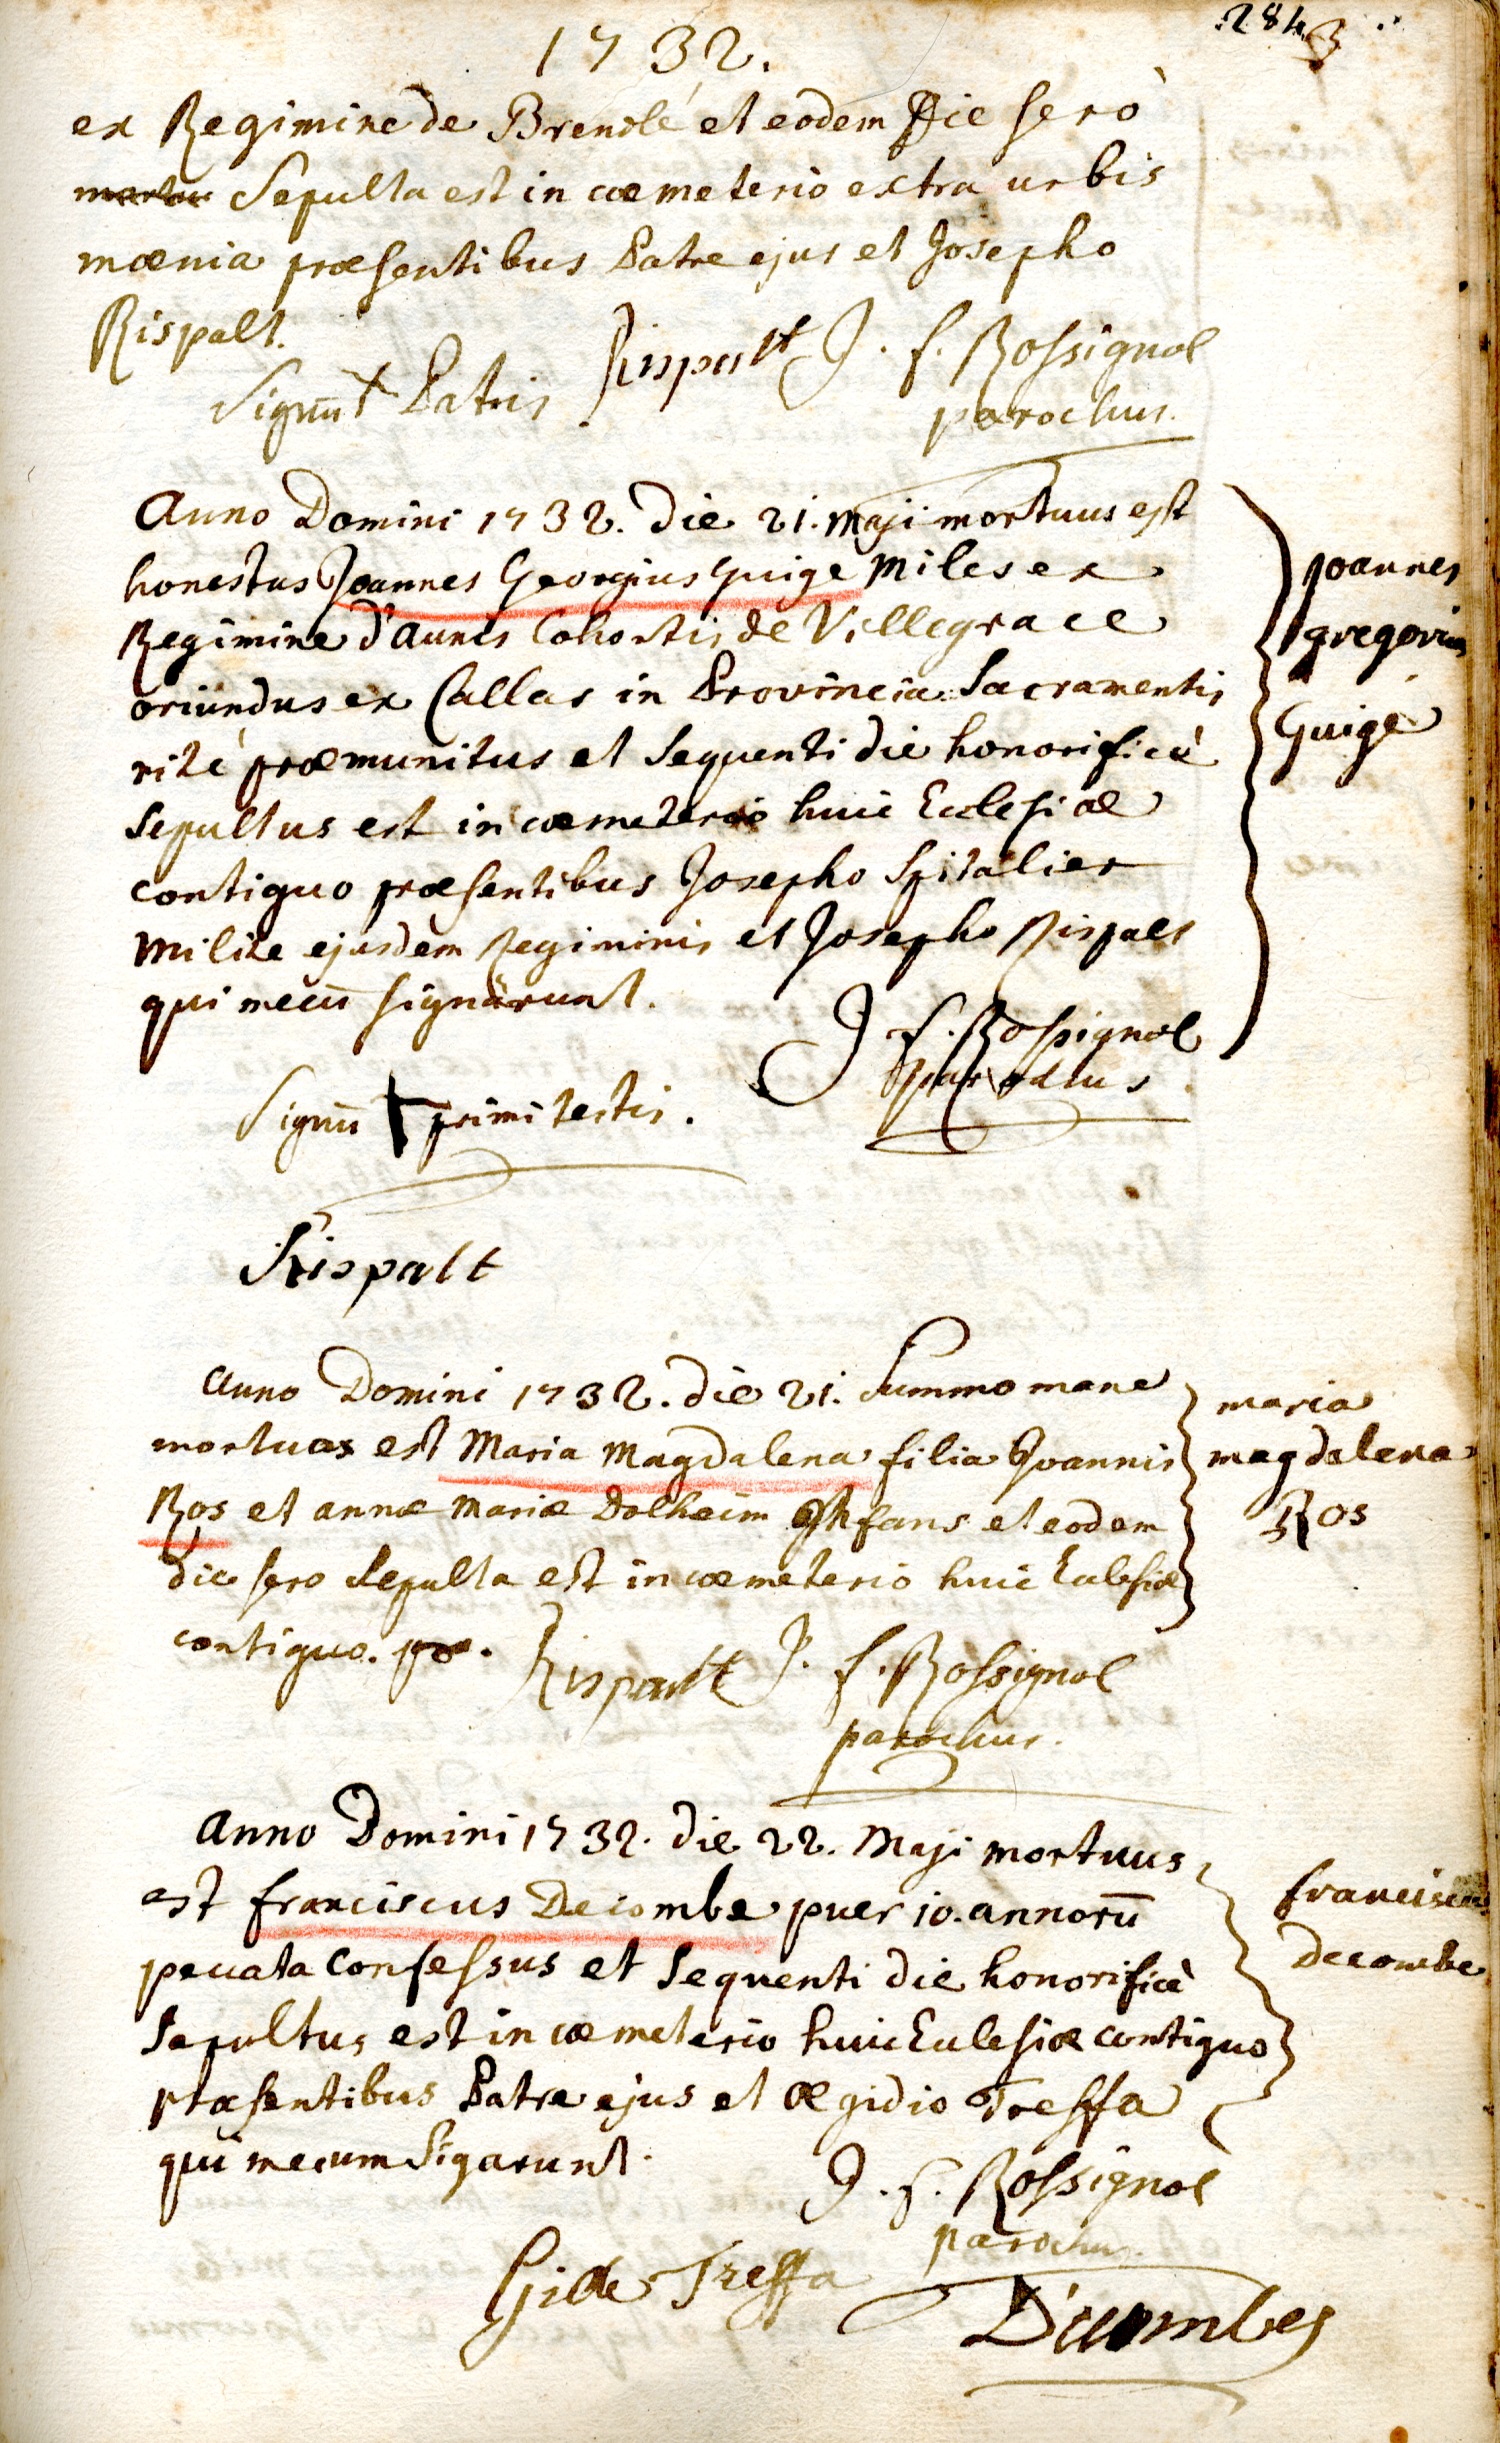 284
3
1732.
ex Regimine de Brendlé et eodem Die serò
Sepulta est in cœmeterio extra urbis
mœnia præsentibus Patre ejus et Josepho
Rispalt.
Signū † Patris Rispalt J. f. Rossignol
parochus.
Anno Domini 1732. die 21. Maji mortuus est
honestus Joannes Georgius Guige Miles ex
Regimine d'Aunes Cohortis de Villegrace
oriundus ex Callas in Provincia Sacramentis
ritè præmunitus et Sequenti die honorificè
Sepultus est in cœmeterio huic Ecclesiæ
contiguo præsentibus Josepho Spitalier
Milite ejusdem Regiminis et Josepho Rispalt
qui mecū signârunt.
J f. Rossignol
parochus
Signū † primi testis.
Rispalt
Joannes
gregorius
Guige
Anno Domini 1732. die 21. Summo mane
mortua est Maria Magdalena filia Joannis
Ros et annæ Mariæ Dolheim Infans et eodem
die sero Sepulta est in cœmeterio huic Ecclesiæ
contiguo. præ.
Rispalt J. f. Rossignol
parochus.
maria
magdalena
Ros
Anno Domini 1732. die 22. Maji mortuus
est franciscus Decombe puer 10. annorū
peccata confessus et Sequenti die honorificè
Sepultus est in cœmeterio huic Ecclesiæ contiguo
præsentibus Patre ejus et Ægidio Treffa
qui mecum Sigarunt.
J. f. Rossignol
parochus.
Gille Treffa
franciscus
Decombe